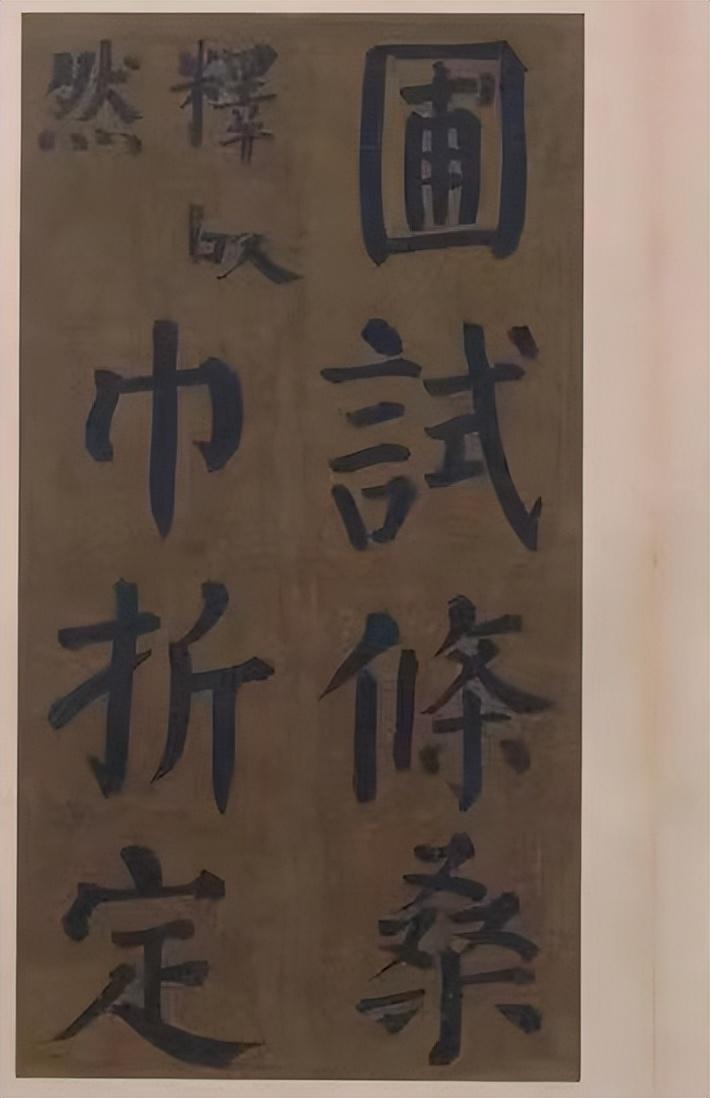 圃試條桑
釋以
然
巾折定